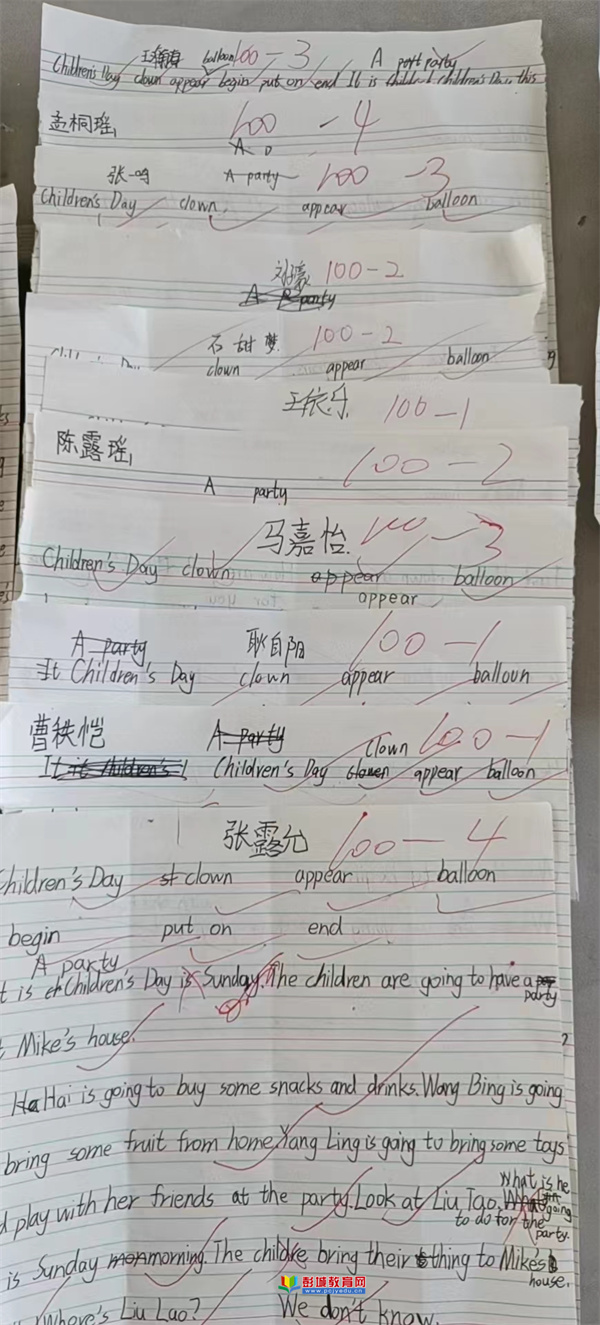 balloon 100-3 A party
Children's Day clown appear begin put on end It is children's Day, this
孟桐瑶 100-4
A
张一鸣 A party 100-3
Children's Day clown. appear balloon
100-2
A party
石甜梦 100-2
clown appear balloon
王依乐 100-1
陈露瑶 100-2
A party
马嘉怡 100-3
Children's Day clown appear balloon
appear
A party 耿自阳 100-1
It Children's Day clown appear balloun
曹秩恺 A party clown 100-1
It it children's Children's Day clowen appear balloon
张露允 100-4
Children's Day st clown appear balloon
begin put on end
A party
t is et Children's Day is Sunday. The children are going to have a party
Mike's house.
Ha Hai is going to buy some snacks and drinks. Wang Bing is going
bring some fruit from home. Yang Ling is going to bring some toys
d play with her friends at the party. Look at Liu Tao. What is he going
to do for the party.
is Sunday mon morning. The childre bring their thing to Mike's house.
Where's Liu Lao? We don't know.
彭城教育网
www.pcjyedu.cn